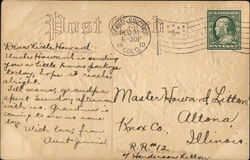 Post Card
GRAND JUNCTION
DEC 21
6-30P
1910
COLO.
Dear little Howard.
Uncle Howard is sending
you a little Xmas package
today, hope it reaches
alright.
Till mama, grandpa
spent Sunday afternoon
with us. Grandma is
coming to see us some
day.
With love from
Aunt Jennie
Master Howard Litton,
Altona
Knox Co.
Illinois
R.R. #12